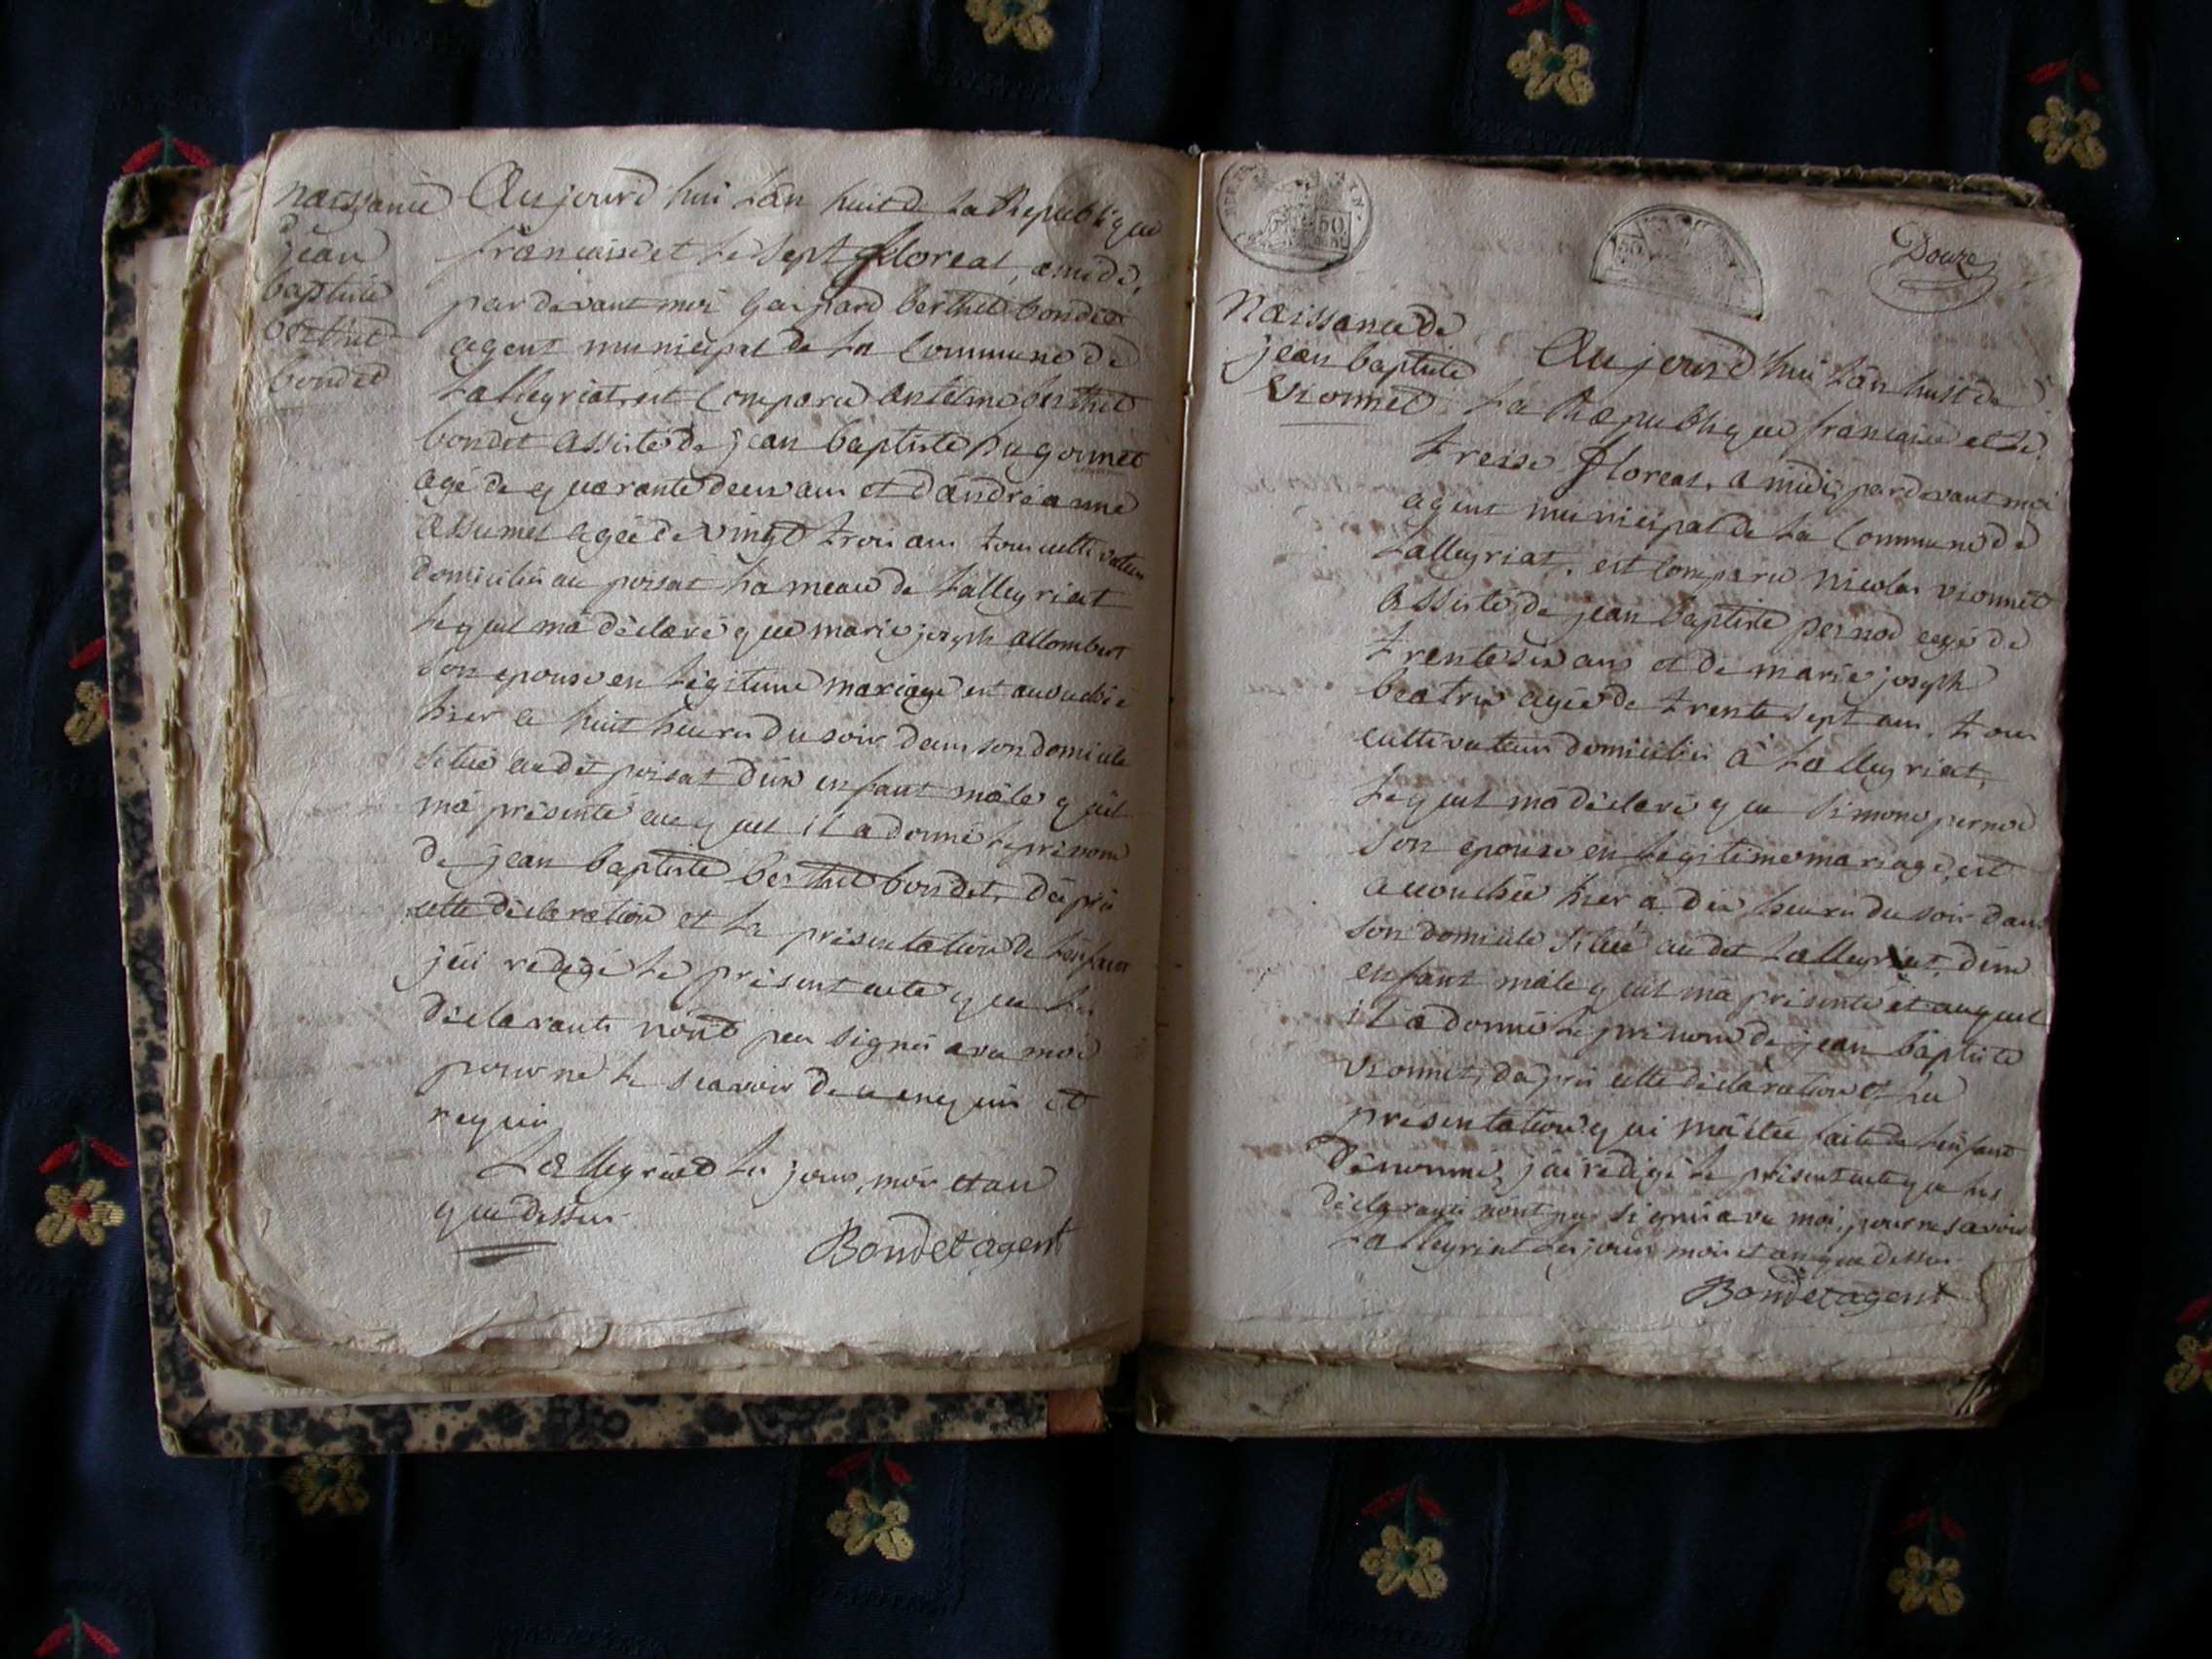 naissance
jean
baptiste
berthet
bondet
Aujourd'hui L'an huit de La Republique
francaise et Le sept floreal, a midi,
pardevant moi gaspard berthet bondet
agent municipal de La Commune de
Lalleyriat, est Comparu antelme berthet
bondet assisté de jean baptiste hugonnet
agé de quarante deux ans et d'andréanne
assumel agée de vingt trois ans tous cultivateurs
domiciliés au poisat hameau de Lalleyriat
Lequel m'a déclaré que marie joseph allombert
son epouse en Légitime mariage est accouchée
hier a huit heures du soir dans son domicile
situé audit poisat d'un enfant mâle qu'il
m'a présenté auquel il a donné Le prenom
de jean baptiste berthet bondet, d'apres
cette déclaration et La présentation de L'enfant
j'ai redigé Le présent acte que Les
déclarants n'ont pas signés avec moi
pour ne Le scavoir de ce enquis et
requis
Lalleyriat Les jours, mois et an
que dessus
Bondet agent
50
50
Douze
Naissance de
jean baptiste
vionnet
Aujourd'hui L'an huit de
La Republique francaise et Le
treise floreal, a midi, pardevant moi
agent municipal de La Commune de
Lalleyriat, est Comparu nicolas vionnet
assisté de jean baptiste pernod agé de
trente six ans et de marie joseph
beatrix agée de trente sept ans, tous
cultivateurs domiciliés a Lalleyriat,
Lequel m'a déclaré que simone pernod
son epouse en Legitime mariage, est
accouchée hier a dix heures du soir dans
son domicile situé audit Lalleyriat, d'un
enfant mâle qu'il m'a présenté et auquel
il a donné Le prénom de jean baptiste
vionnet, d'après cette déclaration et La
presentation qui m'a étée faite de L'enfant
dénommé, j'ai redigé Le présent acte que Les
déclarants n'ont pas signés avec moi, pour ne savoir
Lalleyriat Les jours mois et an que dessus
Bondet agent